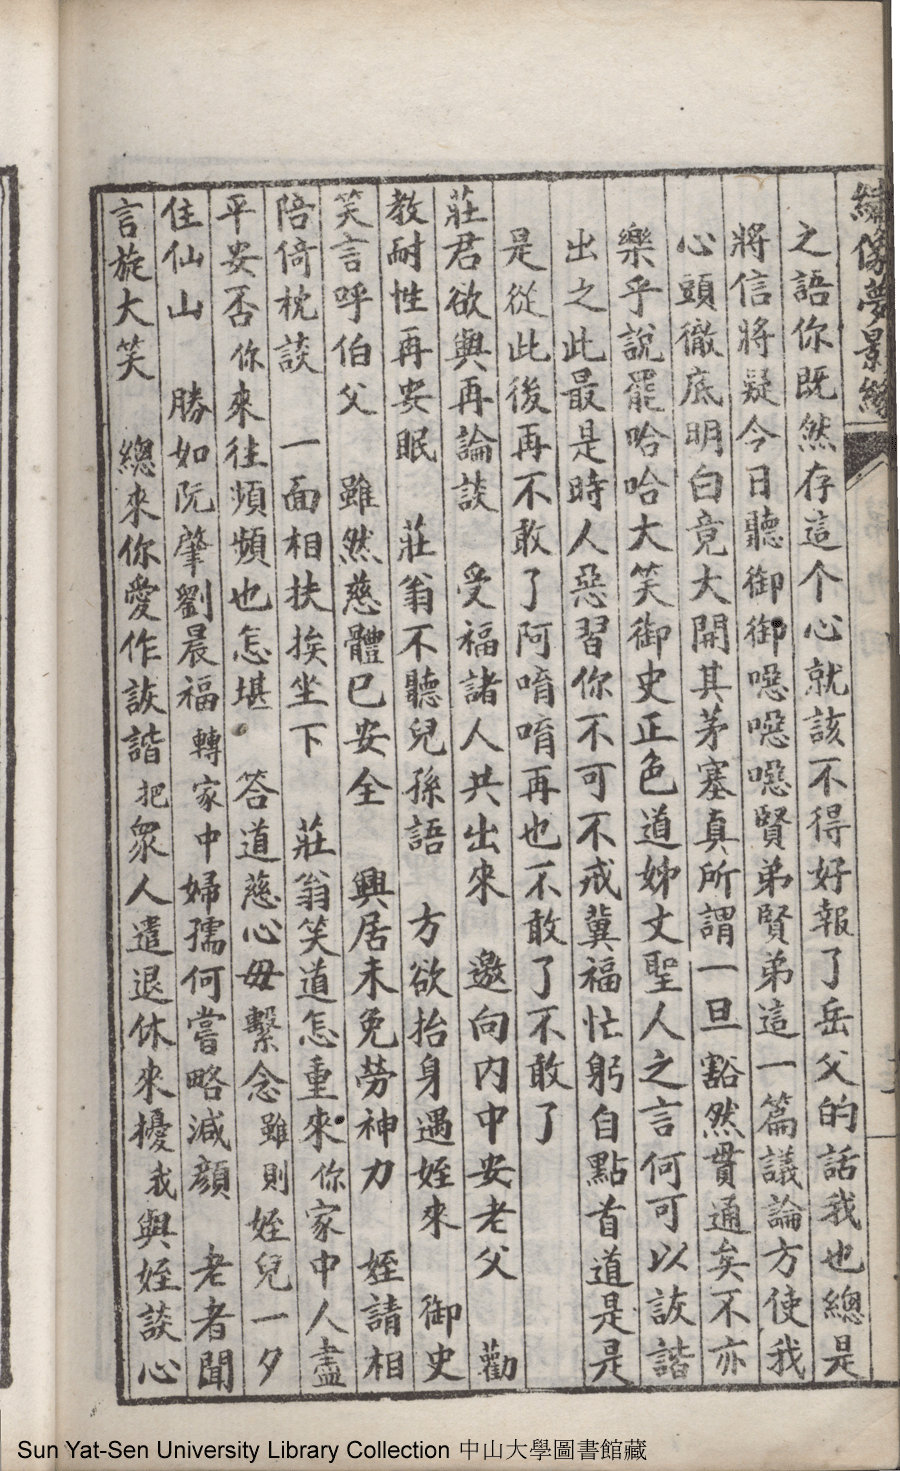 繡像夢景緣
之語你既然存這个心就該不得好報了岳父的話我也總是
將信將疑今日聽御御噁噁噁賢弟賢弟這一篇議論方使我
心頭徹底明白竟大開其茅塞真所謂一旦豁然貫通矣不亦
樂乎說罷哈哈大笑御史正色道姊丈聖人之言何可以詼諧
出之此最是時人惡習你不可不戒冀福忙躬自點首道是是
是從此後再不敢了阿唷唷再也不敢了不敢了
莊君欲與再論談 受福諸人共出來 邀向內中安老父 勸
教耐性再安眠 莊翁不聽兒孫語 方欲抬身遇姪來 御史
笑言呼伯父 雖然慈體已安全 興居未免勞神力 姪請相
陪倚枕談 一面相扶挨坐下 莊翁笑道怎重來你家中人盡
平安否你來往頻頻也怎堪 答道慈心毋繫念雖則姪兒一夕
住仙山 勝如阮肇劉晨福轉家中婦孺何嘗略減顏 老者聞
言旋大笑 總來你愛作詼諧把眾人遣退休來擾我與姪談心
Sun Yat-Sen University Library Collection 中山大學圖書館藏